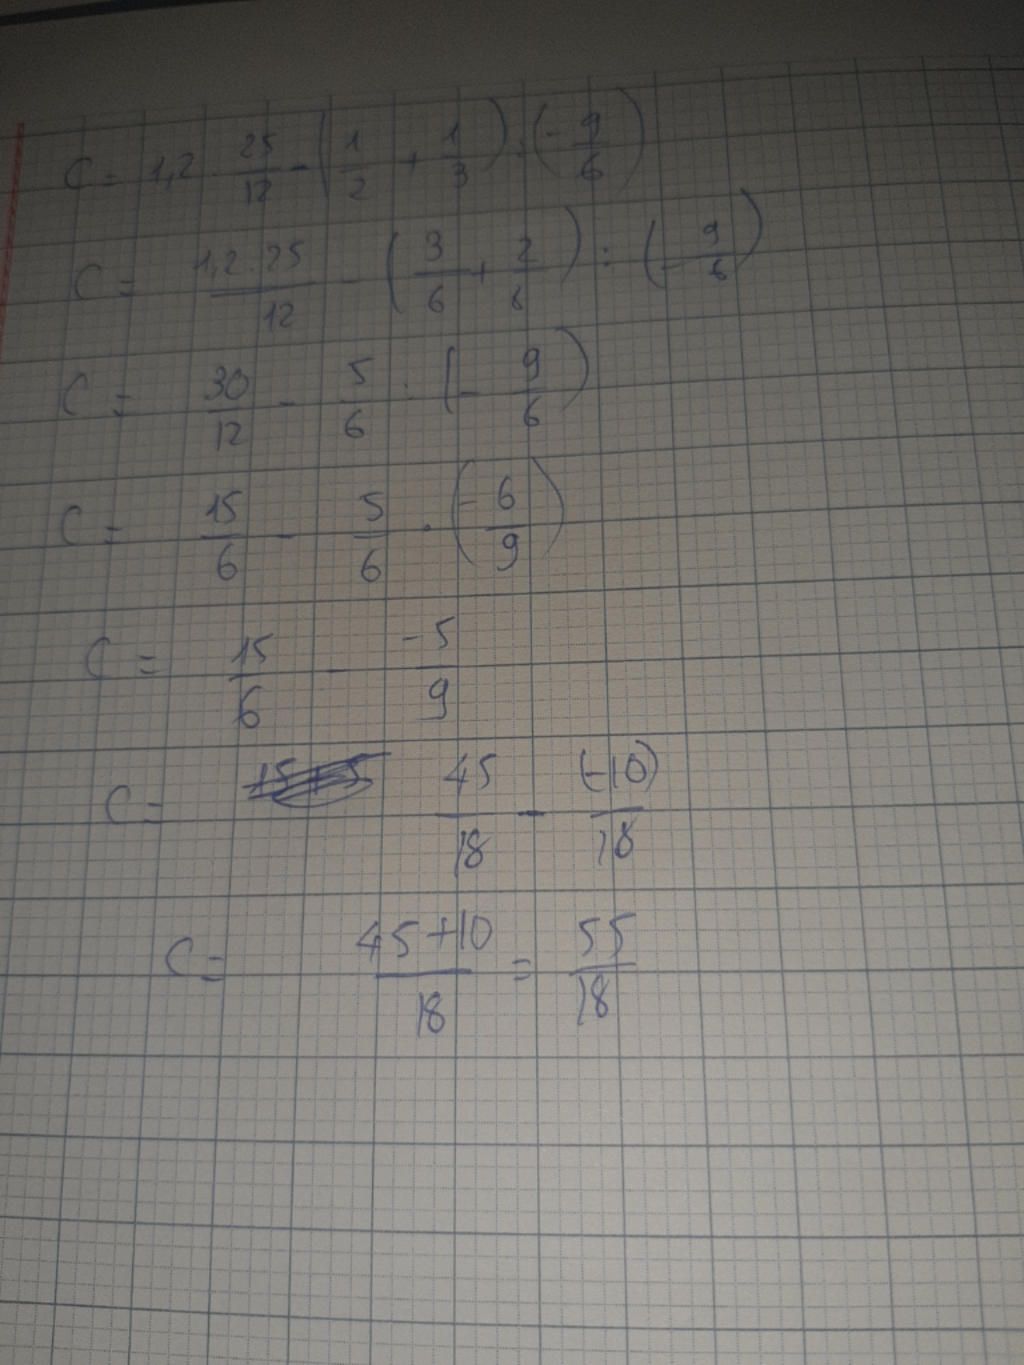 C = 1,2 · 25/12 - (1/2 + 1/3) : (- 9/6)
C = 1,2 · 25/12 - (3/6 + 2/6) : (- 9/6)
C = 30/12 - 5/6 : (- 9/6)
C = 15/6 - 5/6 · (- 6/9)
C = 15/6 - -5/9
C = 45/18 - (-10)/18
C = 45+10/18 = 55/18